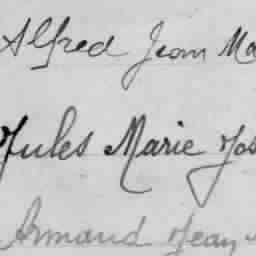 Alfred Jean Ma
Jules Marie Jos
Armand Jean